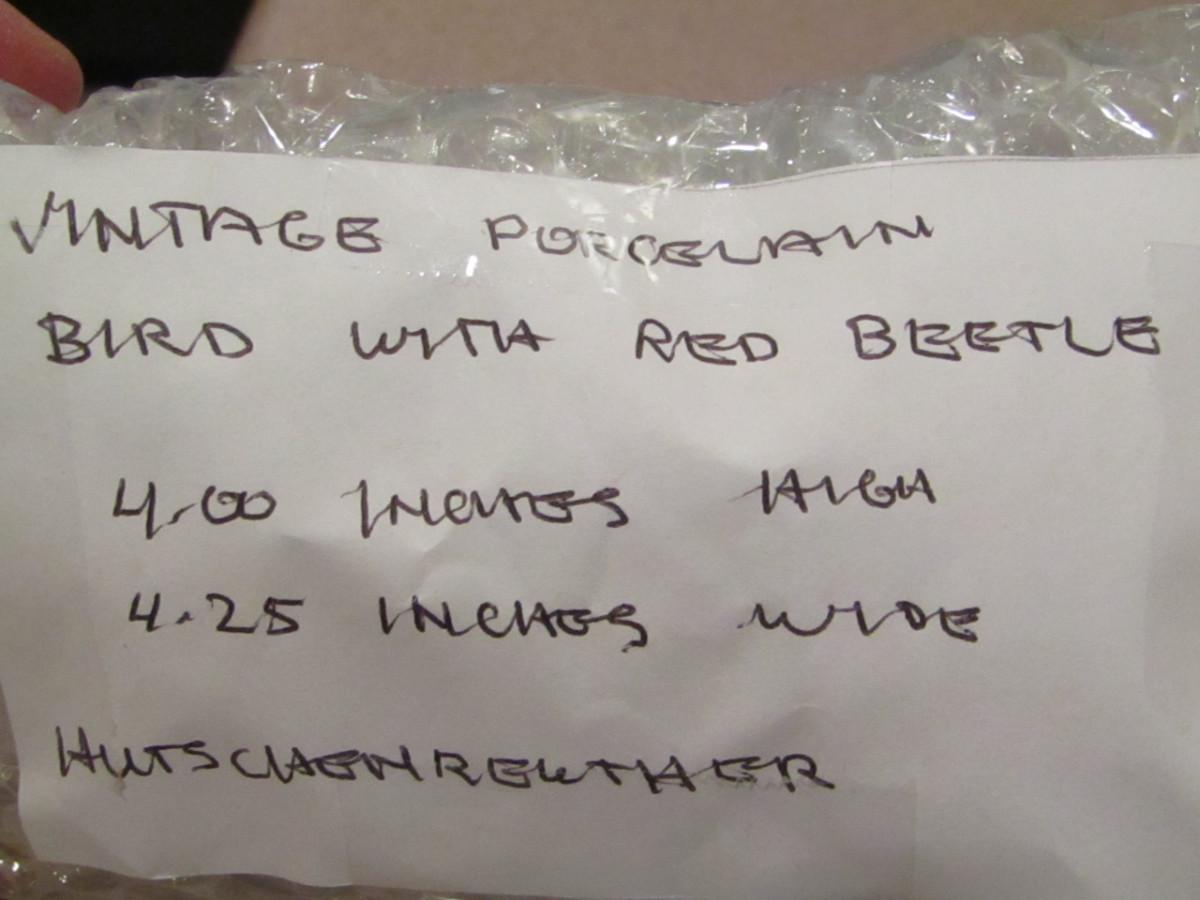 VINTAGE PORCELAIN
BIRD WITH RED BEETLE
4.00 INCHES HIGH
4.25 INCHES WIDE
HUTSCHENREUTHER